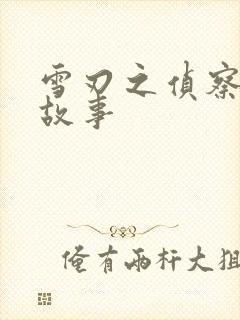 雪刃之偵察
故事
俺有兩杆大狙